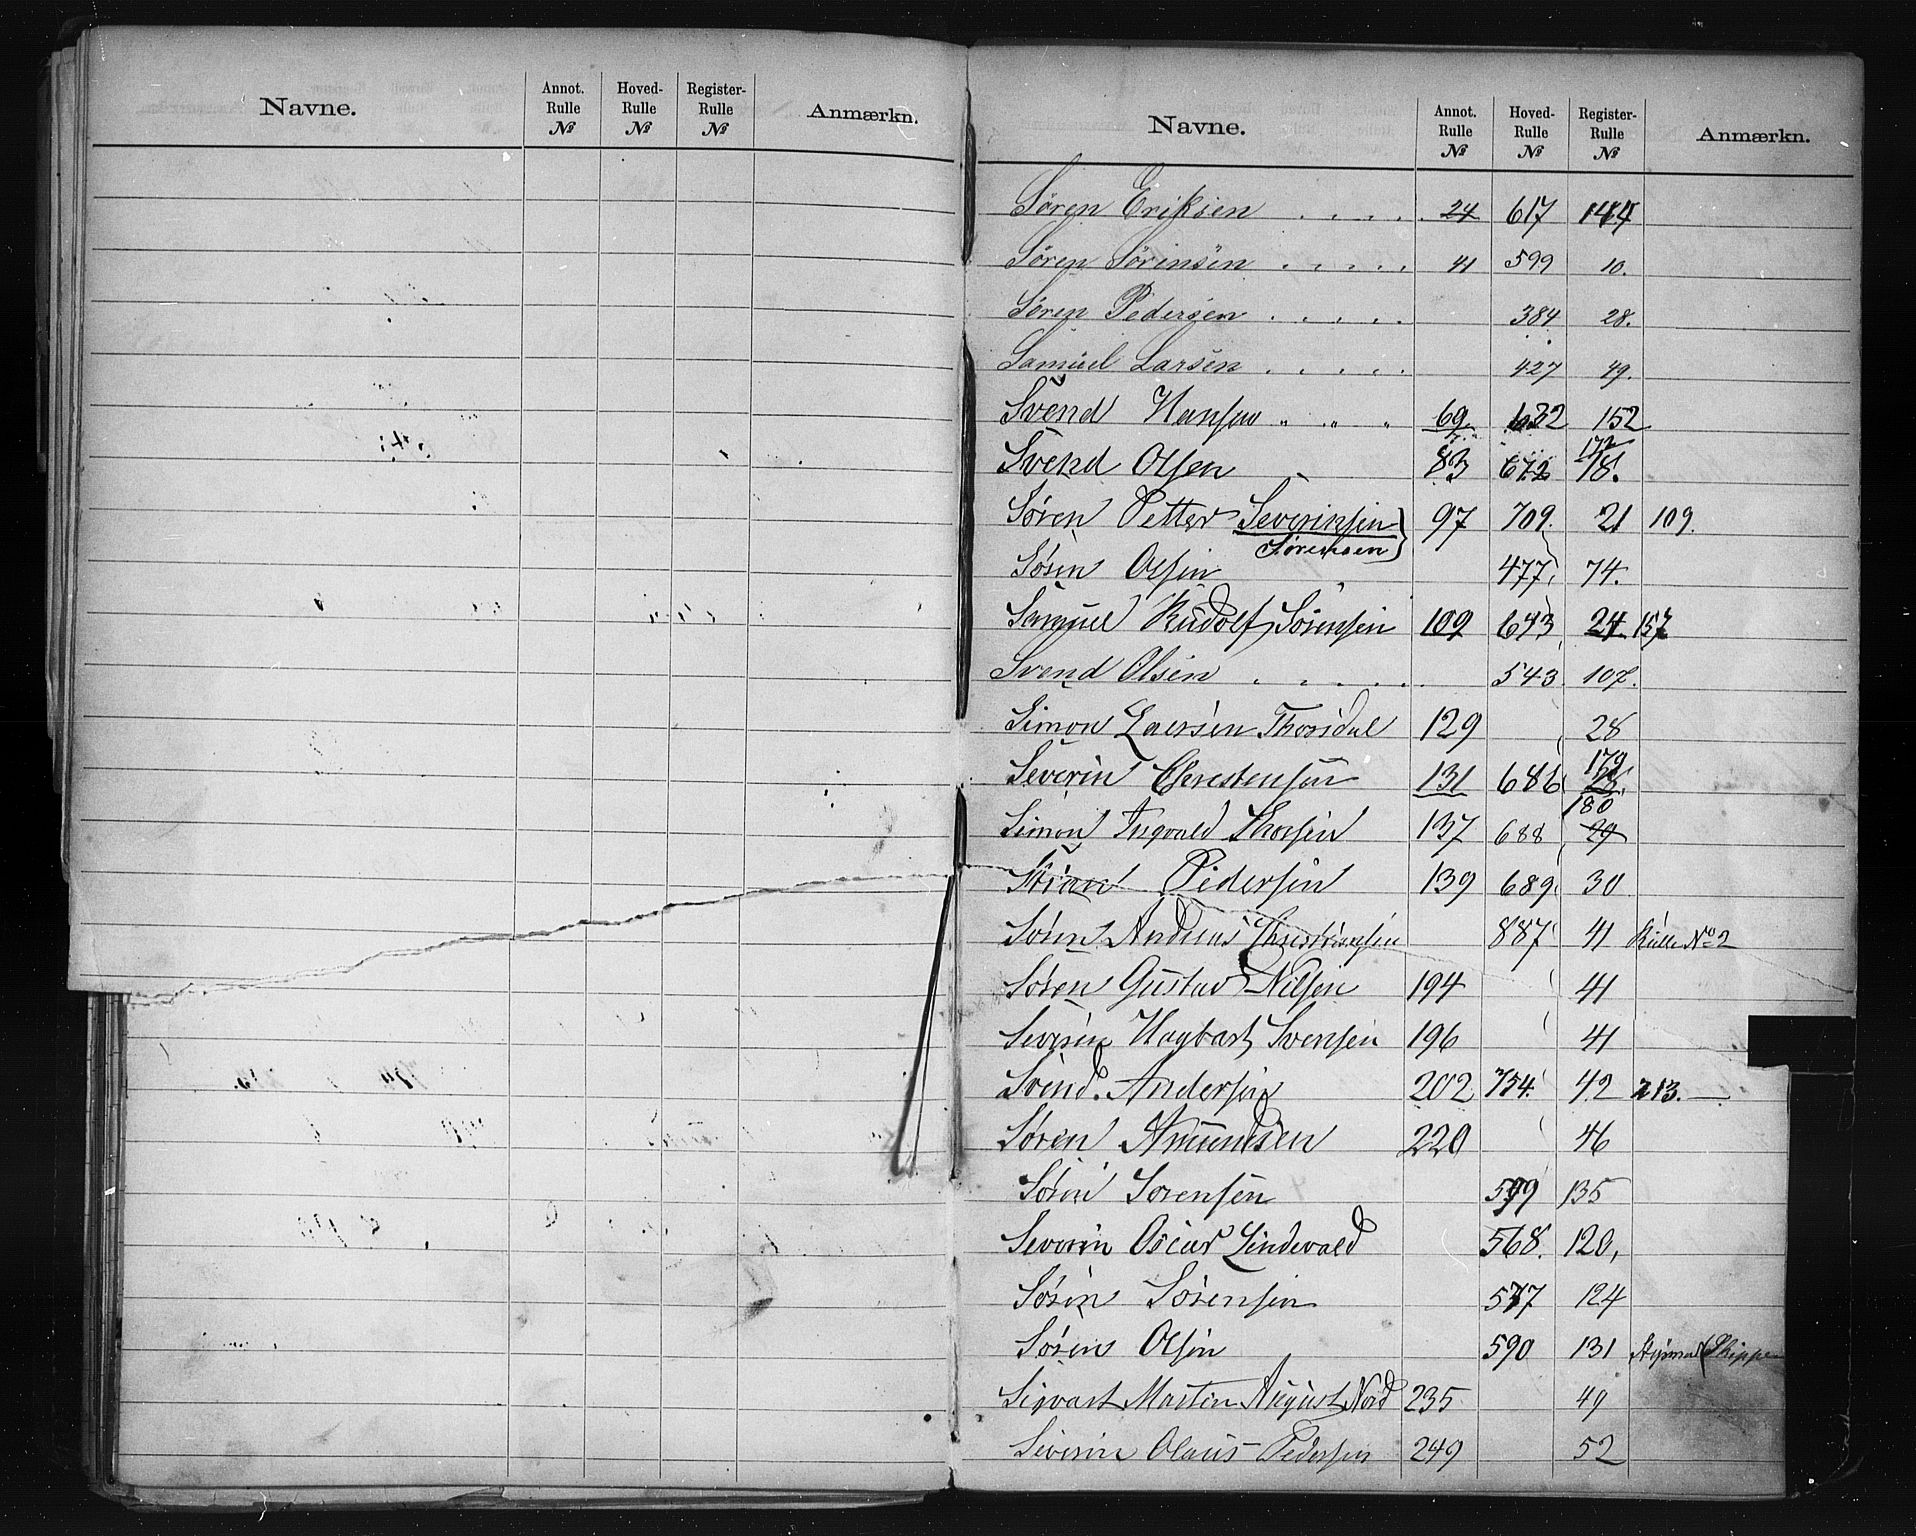 Navne. Annot. Rulle № Hoved- Rulle № Register- Rulle № Anmærkn.
Navne. Annot. Rulle № Hoved- Rulle № Register- Rulle № Anmærkn.
Søren Eriksen . . . . . 24 617 144
Søren Sørensen . . . . . 41 599 10.
Søren Pedersen . . . . . 384 28.
Samuel Larsen . . . . . 427 49.
Svend Hansen " " " 69 632 152
172
Svend Olsen " 83 672 18.
Søren Petter Severinsen } 97 709. 21 109.
Sørensen
Søren Olsen 477 74.
Samuel Rudolf Sørensen 109 643 24 157
Svend Olsen . . . . . 543 107.
Simon Larsen Thorsdal 129 28
179
Severin Christensen 131 686
180
Simon Ingvald Thorsen 137 688 29
Stian Pedersen 139 689 30
Søren Andreas Christiansen 887 41 Rulle No 2
Søren Gustav Nilsen 194 41
Severin Hagbart Svensen 196 41
Svend. Andersen 202 754. 42 213. —
Søren Amundsen 220 46
Søren Sørensen 599 135
Severin Oscar Lindevald 568. 120,
Søren Sørensen 577 124
Søren Olsen 590 131 Skipper
Sigvart Martin August Nord 235 49
Severin Olaus Pedersen 249 52